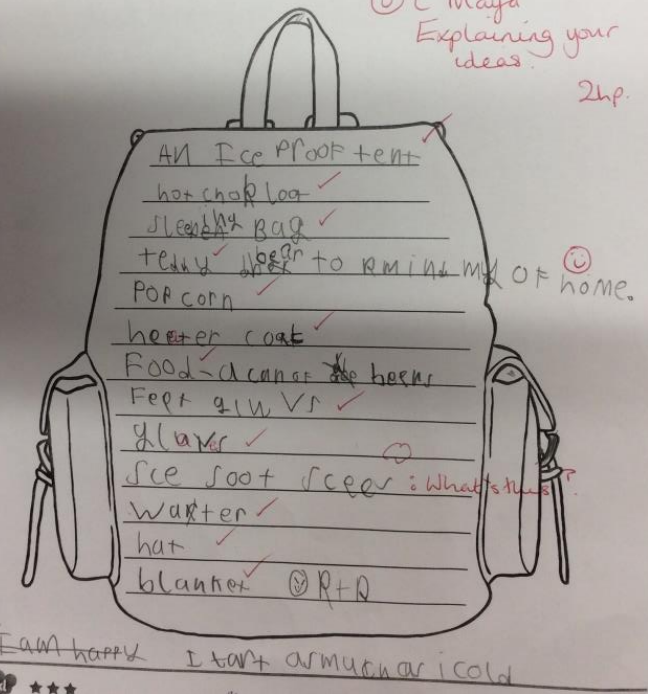 Maya
Explaining your
ideas.
2hp.
AN Ice Proof tent
hot chok lot
Bag
teddy bear to rmind my of home.
Popcorn
heater coat
Food - a can of beens
Feet gluvs
glaves
sce soot scees : What's this?
Wakter
hat
blanket R+R
I am happy I tart asmuch as i cold